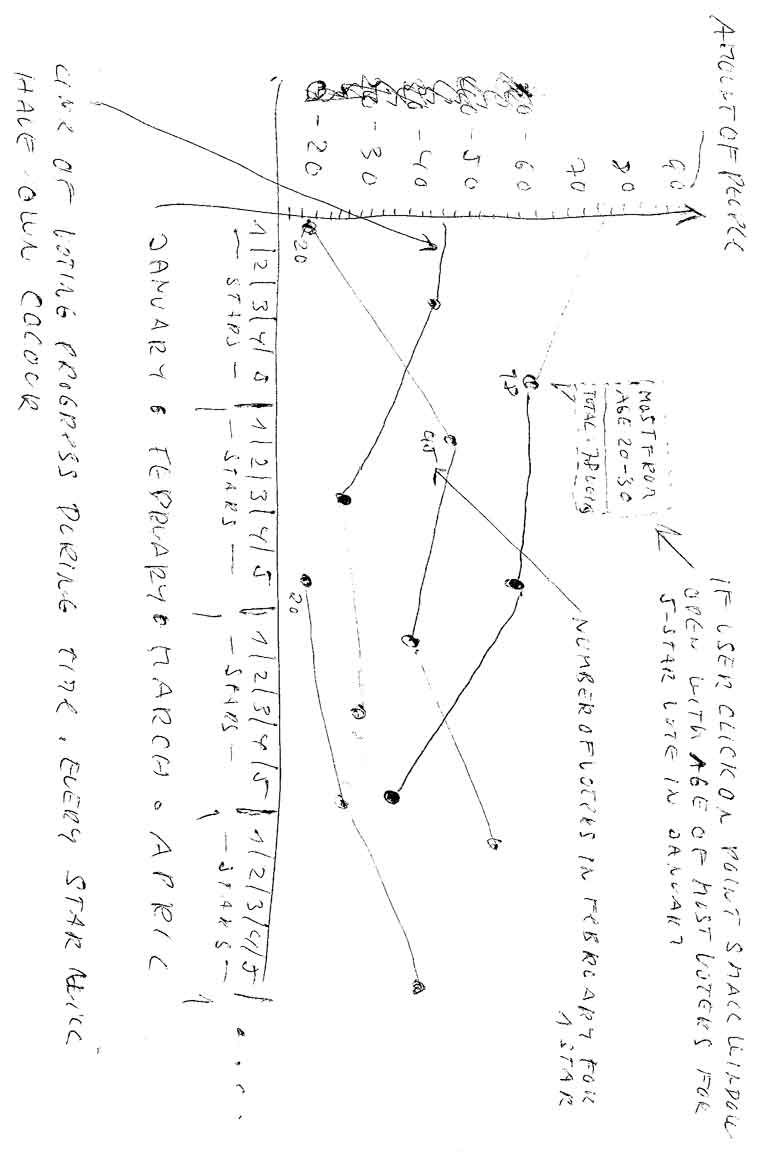 AMOUNT OF PEOPLE
90
80
70
- 60
- 50
- 40
- 30
- 20
MOST FROM
AGE 20-30
TOTAL: 78
78
IF USER CLICK ON POINT SMALL WINDOW
OPEN WITH AGE OF MOST VOTERS FOR
5-STAR VOTE IN JANUARY
NUMBER OF VOTERS IN FEBRUARY FOR
1 STAR
20
20
1/2/3/4/5 1/2/3/4/5 1/2/3/4/5 1/2/3/4/5
— STARS — — STARS — — STARS — — STARS —
JANUARY FEBRUARY MARCH APRIL
LINE OF VOTING PROGRESS DURING TIME. EVERY STAR WILL
HAVE OWN COLOUR